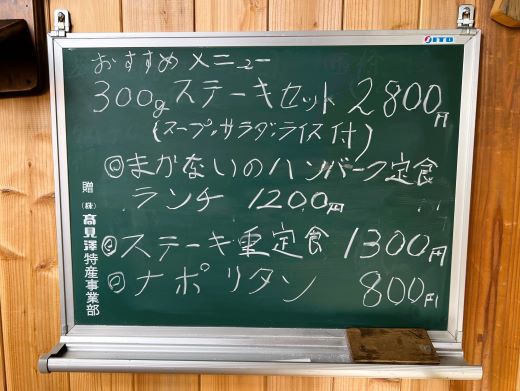 ITO
おすすめメニュー
300gステーキセット 2800円
(スープ.サラダ.ライス付)
◎まかないのハンバーク定食
ランチ 1200円
◎ステーキ重定食 1300円
◎ナポリタン 800円
贈 (株) 髙見澤特産事業部